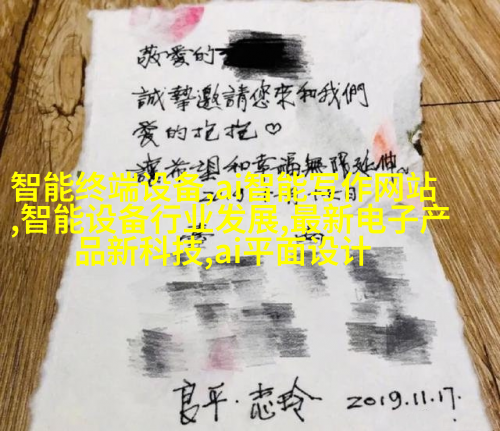 敬愛的
誠摯邀請您來和我們
愛的抱抱♡
讓希望和幸福無限延伸。
智能终端设备,ai智能写作网站
,智能设备行业发展,最新电子产
品新科技,ai平面设计
良平·志玲 2019.11.17.